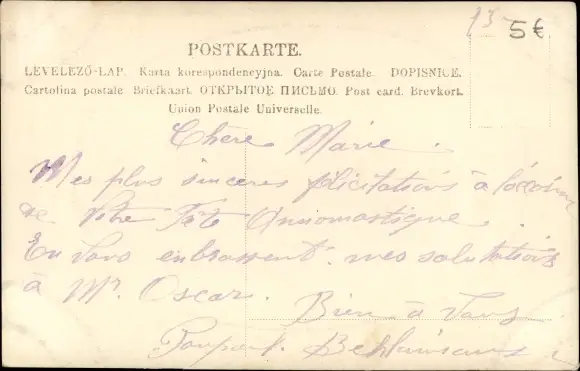 13-
5€
POSTKARTE.
LEVELEZŐ-LAP. Karta korespondencyjna. Carte Postale. DOPISNICE.
Cartolina postale Briefkaart. ОТКРЫТОЕ ПИСЬМО. Post card. Brevkort.
Union Postale Universelle.
Chère Marie.
Mes plus sinceres félicitations à
de Votre Fête Onnomastique.
En Vous enbrassent. mes salutations
à Mr. Oscar.
Bien à Vous